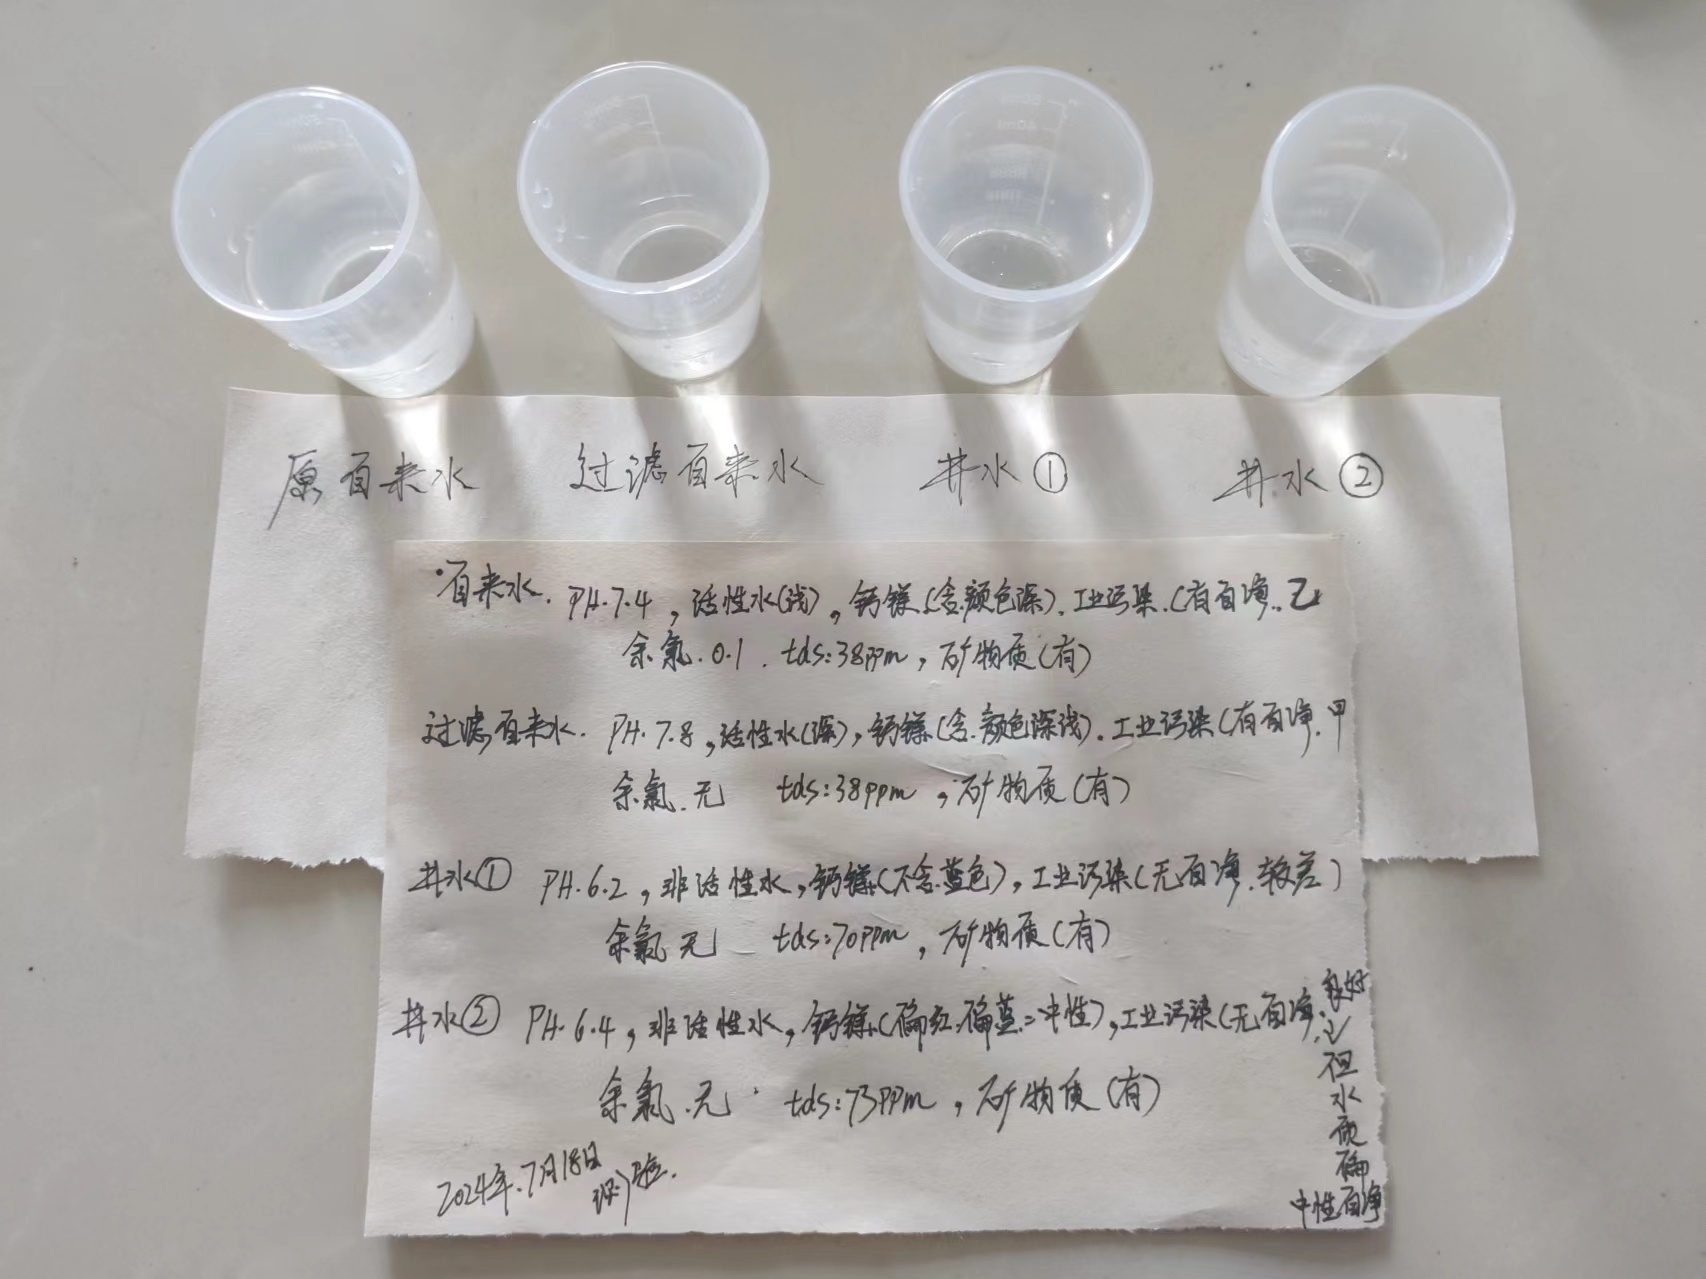 原自来水 过滤自来水 井水① 井水②
·自来水. PH.7.4，活性水(浅)，钙镁(含.颜色深).工业污染.(有自净..乙
余氯.0.1. tds:38ppm，矿物质(有)
过滤自来水. PH.7.8，活性水(深)，钙镁(含.颜色深浅).工业污染(有自净.甲
余氯.无 tds:38ppm，矿物质(有)
井水① PH.6.2，非活性水，钙镁(不含.蓝色)，工业污染(无自净.较差)
余氯 无 tds:70ppm，矿物质(有)
井水② PH.6.4，非活性水，钙镁(偏红.偏蓝=中性)，工业污染(无自净.良好
但水质偏中性自净
余氯.无 tds:73ppm，矿物质(有)
2024年.7月18日
测验.